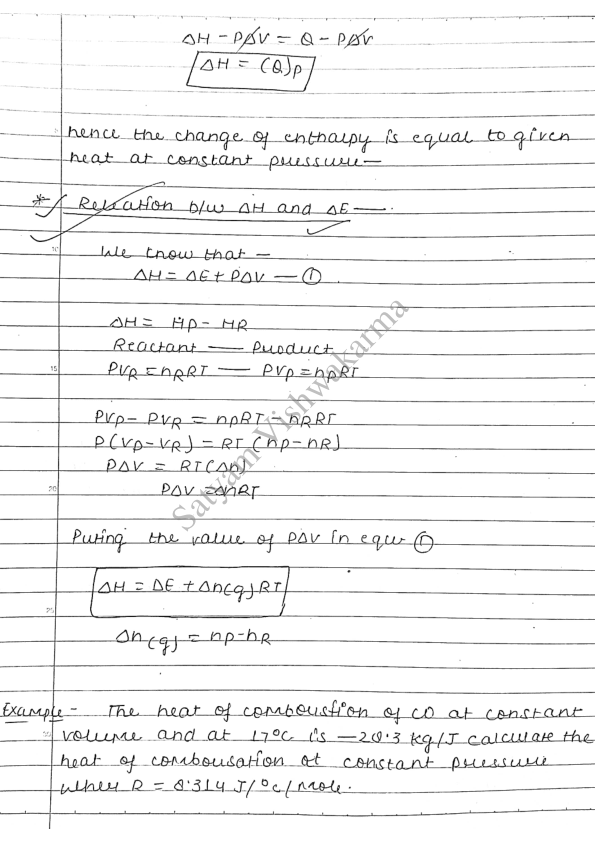 ΔH - PΔV = Q - PΔV
ΔH = (Q)p
hence the change of enthalpy is equal to given
heat at constant pressure—
* Relation b/w ΔH and ΔE —.
We know that —
ΔH = ΔE + PΔV — ①
ΔH = HP - HR
Reactant — Product
PVR = nRRT — PVP = nPRT
PVP - PVR = nPRT - nRRT
P(VP - VR) = RT (nP - nR)
PΔV = RT(Δn)
PΔV = ΔnRT
Puting the value of PΔV in equ ①
ΔH = ΔE + Δn(g) RT
Δn(g) = nP - nR
Example - The heat of comboustion of CO at constant
volume and at 17°C is —28.3 kg/J calculate the
heat of combousation at constant pressure
when R = 8.314 J/°C/mole.
Satyam Vishwakarma